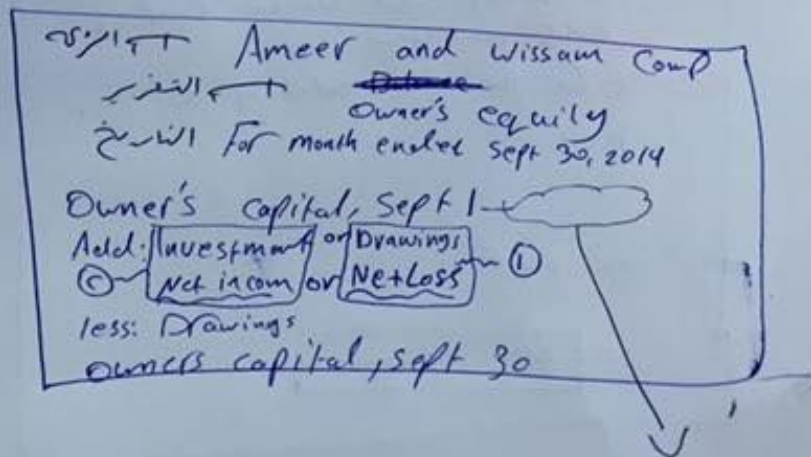 اسم الشركة Ameer and Wissam Comp
اسم التقرير Balance
Owner's equily
التاريخ For month ended Sept 30, 2014
Owner's capital, Sept 1
Add: Investment or Drawings
Net incom or Net Loss ①
less: Drawings
owners capital, sept 30